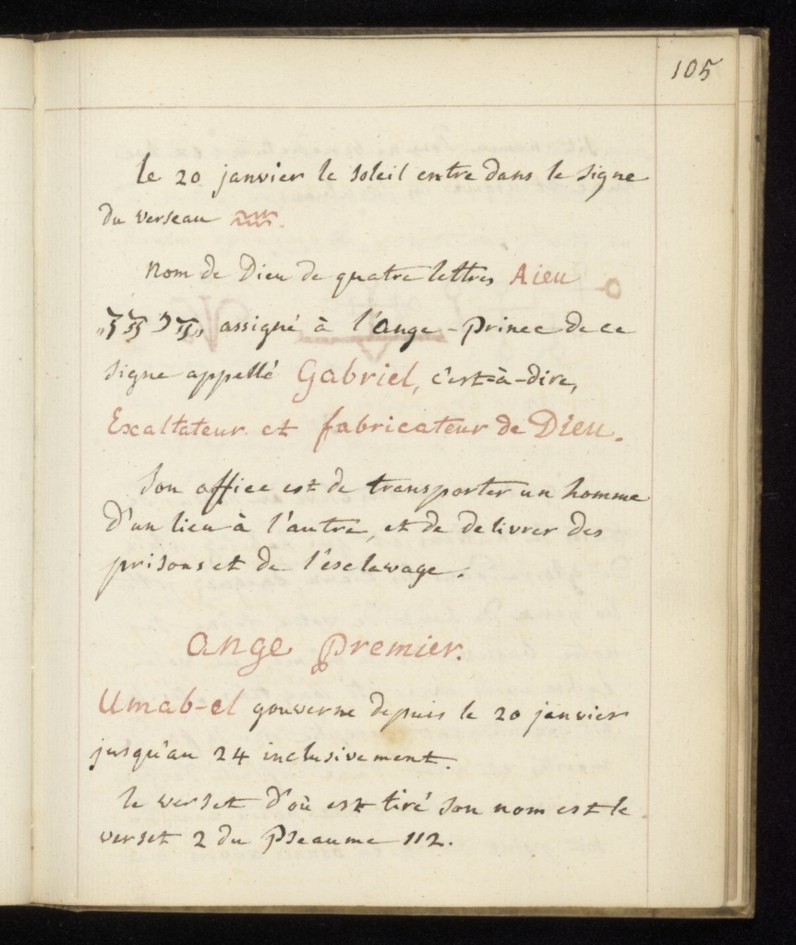 105
le 20 janvier le Soleil entre dans le Signe
du verseau ♒.
Nom de Dieu de quatre lettres Aieu
assigné à l'ange-Prince de ce
Signe appellé Gabriel, c'est-à-dire,
Exaltateur et fabricateur de Dieu.
Son office est de transporter un homme
d'un lieu à l'autre, et de delivrer des
prisons et de l'esclavage.
Ange Premier.
Umab-el gouverne depuis le 20 janvier
jusqu'au 24 inclusivement.
le verset d'où est tiré son nom est le
verset 2 du Pseaume 112.